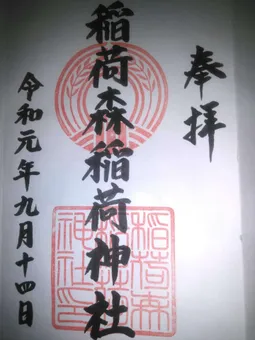 奉拝
稲荷森稲荷神社
令和元年九月十四日
稲荷森
神社印